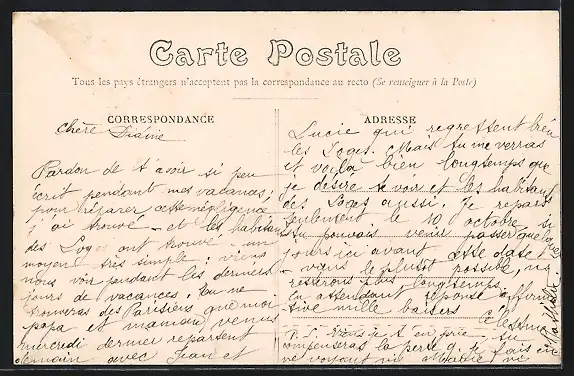 Carte Postale
Tous les pays étrangers n'acceptent pas la correspondance au recto (Se renseigner à la Poste)
CORRESPONDANCE
Chère
Pardon de t'avoir si peu
écrit pendant mes vacances;
pour réparer cette négligence
j'ai trouvé - et les habitants
des Loges ont trouvé un
moyen très simple: viens
nous voir pendant les derniers
jours de vacances. Tu ne
trouveras des Parisiens que moi
papa et maman venus
mercredi dernier repartent
demain avec Jean et
ADRESSE
Lucie qui regrettent bien
les Loges. Mais tu me verras
et voilà bien longtemps que
je désire te voir et les habitants
des Loges aussi. Je repars
seulement le 10 octobre si
tu pouvais venir passer quelques
jours ici avant cette date
- viens le plutôt possible, ns
resterons plus longtemps
En attendant réponse
mille baisers
P.S. je t'en prie
la perte q. je fais en
ne voyant